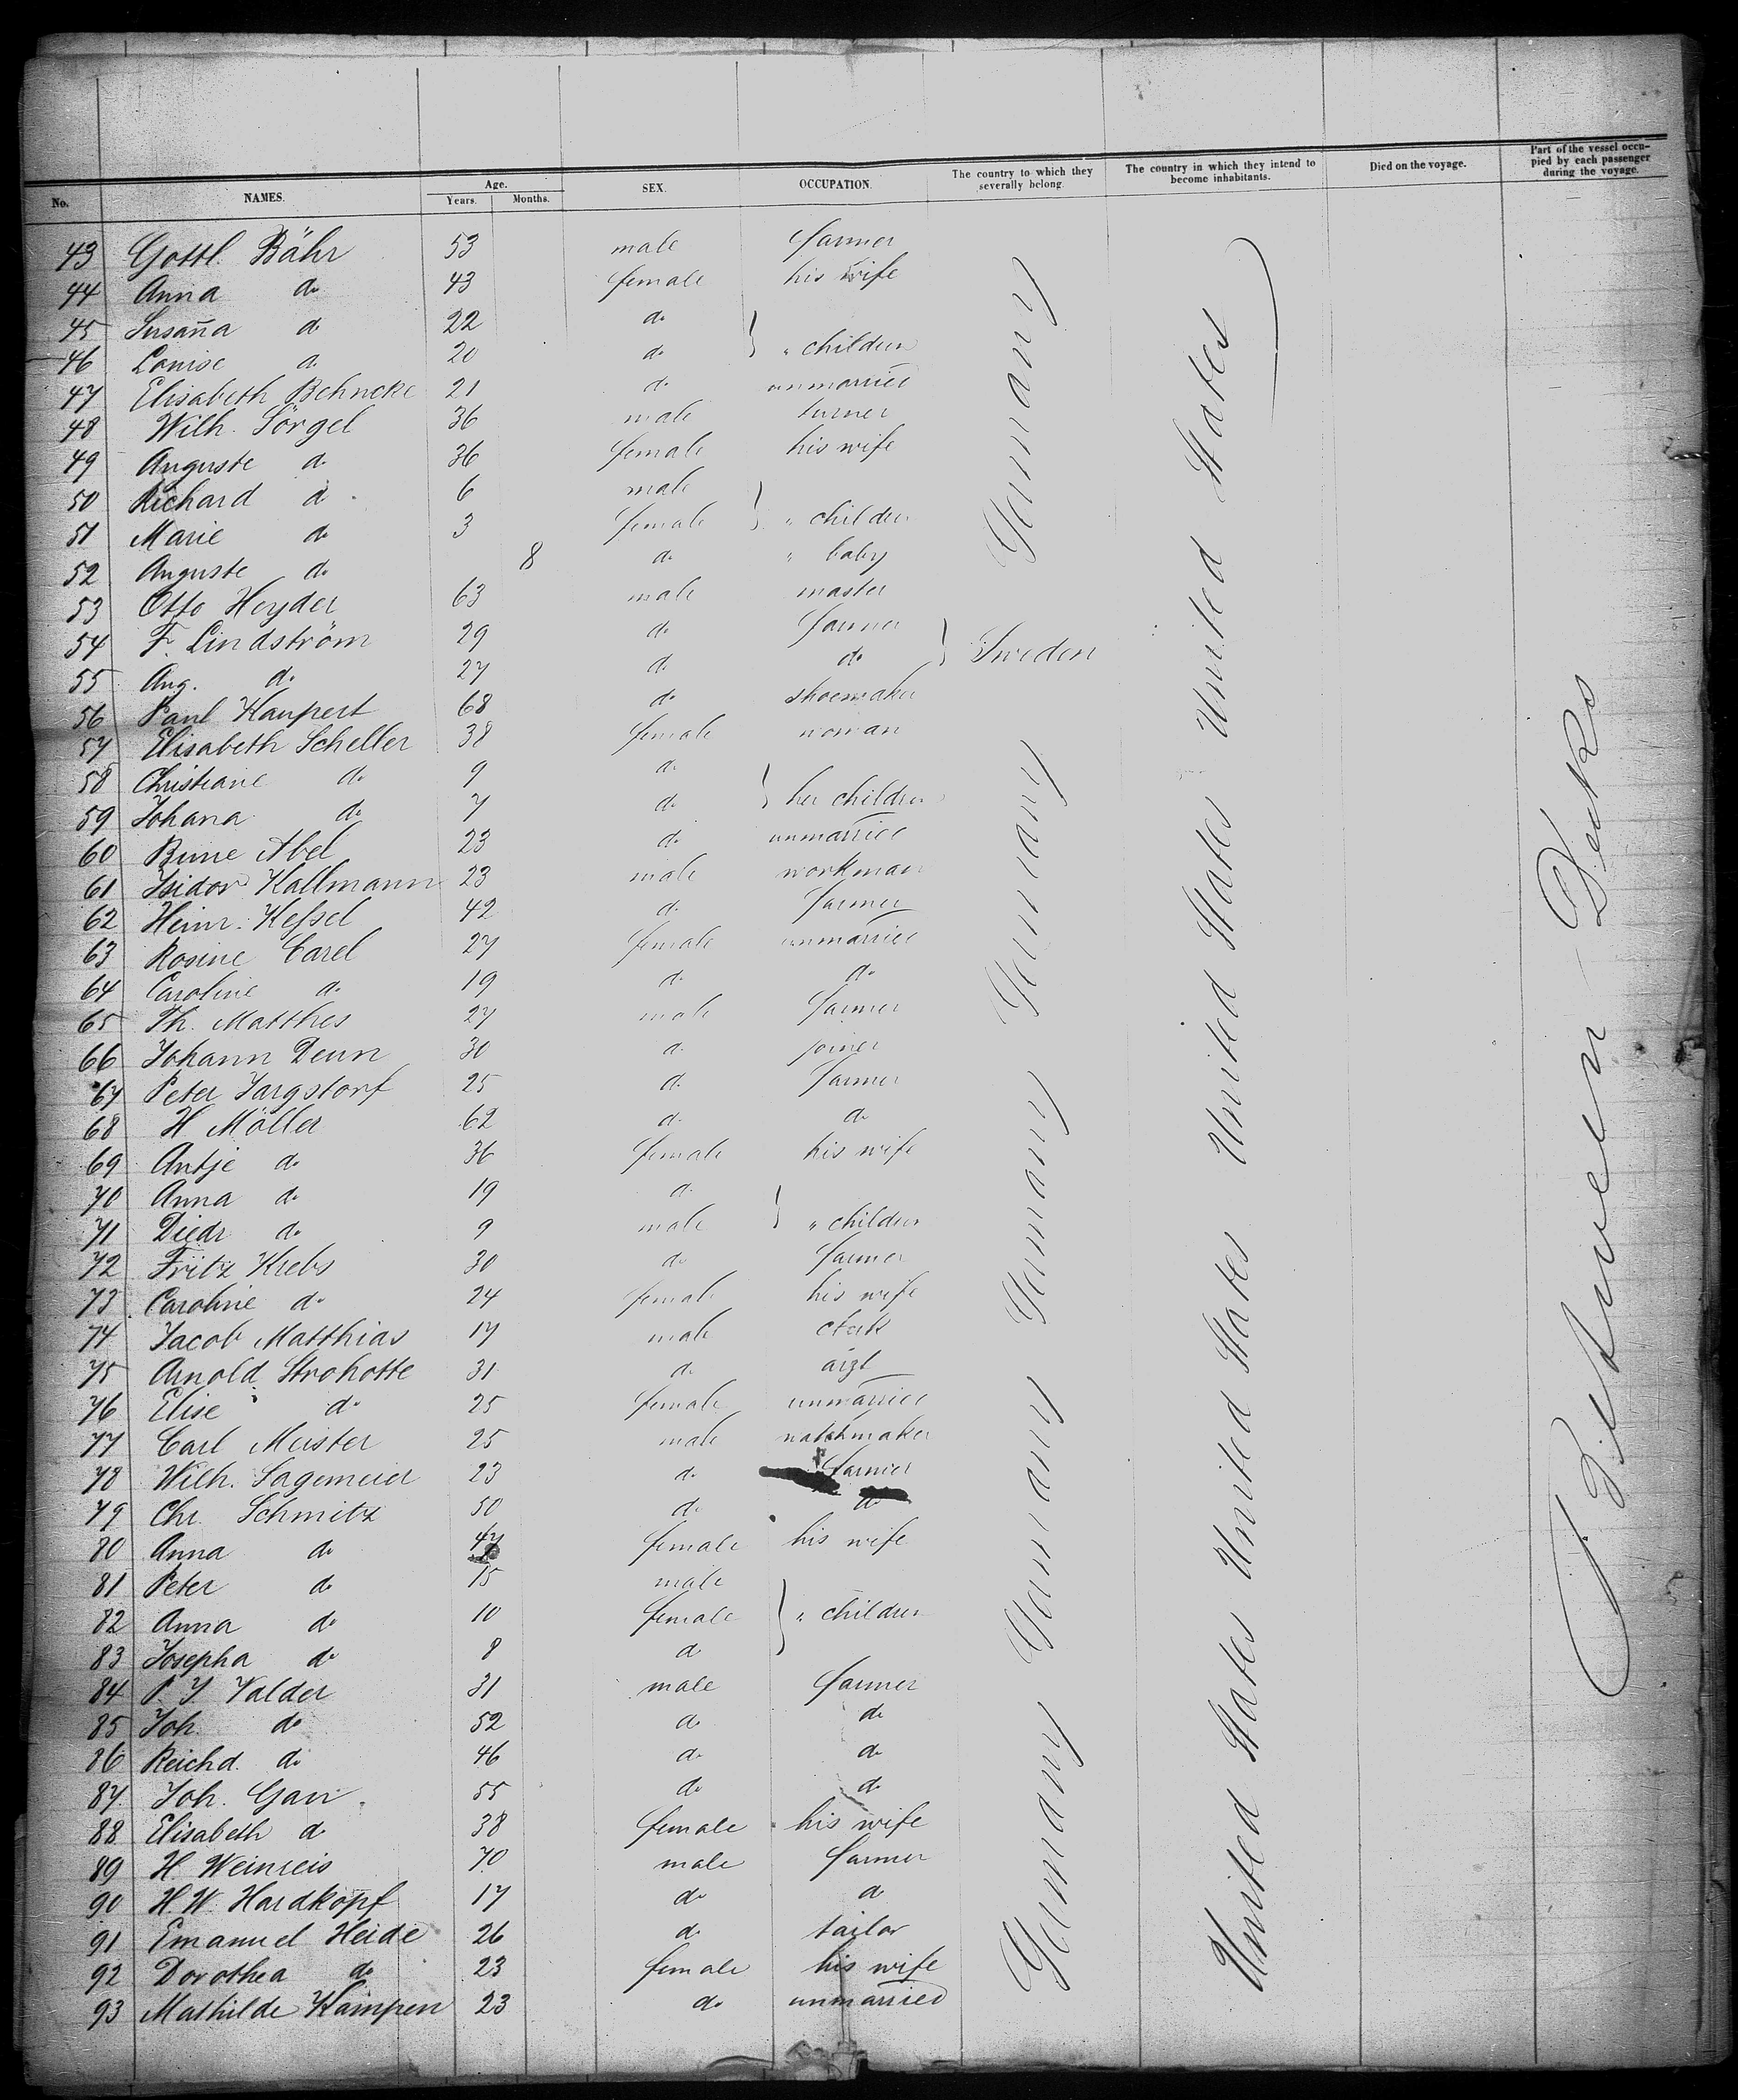 No. NAMES. Age. Years. Months. SEX. OCCUPATION. The country to which they severally belong. The country in which they intend to become inhabitants. Died on the voyage. Part of the vessel occupied by each passenger during the voyage.
43 Gottl. Bähr 53 male farmer
44 Anna do 43 female his wife
45 Susan̄a do 22 do
46 Louise do 20 do } " children
47 Elisabeth Behncke 21 do unmarried
48 Wilh. Sörgel 36 male turner
49 Auguste do 36 female his wife
50 Richard do 6 male
51 Marie do 3 female } " children
52 Auguste do 8 do " baby
53 Otto Heyder 63 male master
54 F. Lindström 29 do farmer
55 Aug. do 27 do do } Sweden
56 Paul Haupert 68 do shoemaker
57 Elisabeth Scheller 38 female woman
58 Christiane do 9 do
59 Johana do 7 do } her children
60 Abel 23 do unmarried
61 Isidor Kallmann 23 male workman
62 Heinr. Keſsel 42 do farmer
63 Rosine Carel 27 female unmarried
64 Caroline do 19 do do
65 Th. Matthes 27 male farmer
66 Johann Deun 30 do joiner
67 Peter Jargstorf 25 do farmer
68 H Möller 62 do do
69 Antje do 36 female his wife
70 Anna do 19 do
71 Diedr do 9 male } " children
72 Fritz Krebs 30 do farmer
73 Caroline do 24 female his wife
74 Jacob Matthias 17 male clerk
75 Arnold Strohotte 31 do arzt
76 Elise do 25 female unmarried
77 Carl Meister 25 male watchmaker
78 Wilh. Sagemeier 23 do farmer
79 Chr. Schmitz 50 do do
80 Anna do 47 female his wife
81 Peter do 15 male
82 Anna do 10 female } " children
83 Josepha do 8 do
84 P. J Valder 31 male farmer
85 Joh. do 52 do do
86 Reichd. do 46 do do
87 Joh. Gavi 55 do do
88 Elisabeth do 38 female his wife
89 H. Weinreis 70 male farmer
90 H. W. Hardkopf 17 do do
91 Emanuel Heide 26 do tailor
92 Dorothea do 23 female his wife
93 Mathilde Kampen 23 do unmarried
Germany
Germany
Germany
Germany
Germany
United States
United States
United States
United States
United States
Between Decks